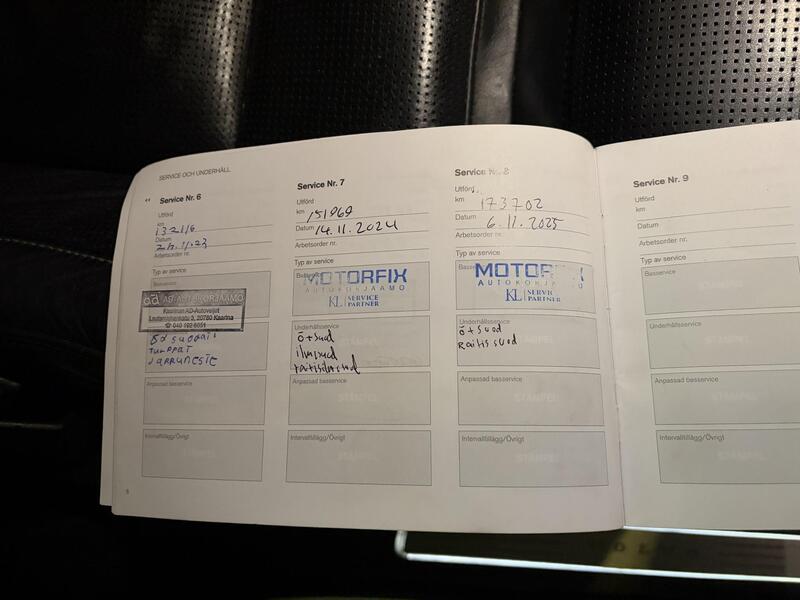 SERVICE OCH UNDERHÅLL
Service Nr. 6
Utförd
km
132116
Datum
Arbetsorder nr.
Typ av service
ad AD-AUTOKORJAAMO
Kaarinan AD-Autoveljet
20780 Kaarina
TULPPAT
JARRUNESTE
Anpassad basservice
STÄMPEL
Intervalltillägg/Övrigt
STÄMPEL
8
Service Nr. 7
Utförd
km 151969
Datum 14.11.2024
Arbetsorder nr.
Typ av service
Basservice
MOTORFIX
AUTOKORJAAMO
KL SERVICE
PARTNER
Underhållsservice
Ö+suod
ilmasuod
raitisilmasuod
Anpassad basservice
STÄMPEL
Intervalltillägg/Övrigt
STÄMPEL
Service Nr. 8
Utförd
km 173702
Datum 6.11.2025
Arbetsorder nr.
Typ av service
MOTORFIX
AUTOKORJAAMO
KL SERVICE
PARTNER
Underhållsservice
Ö+suod
Raitis suod
Anpassad basservice
STÄMPEL
Intervalltillägg/Övrigt
STÄMPEL
Service Nr. 9
Utförd
km
Datum
Arbetsorder nr.
Typ av service
Basservice
STÄMPEL
Underhållsservice
STÄMPEL
Anpassad basservice
STÄMPEL
Intervalltillägg/Övrigt
STÄMPEL